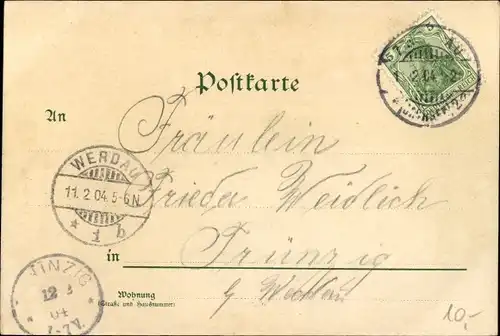 2.04.
Postkarte
An
Fräulein
WERDAU
11.2.04.5-6N
* 1 b
Frieda Weidlich
in
Trünzig
b/ Werdau
Wohnung
(Straße und Hausnummer)
12 2
04
10,-